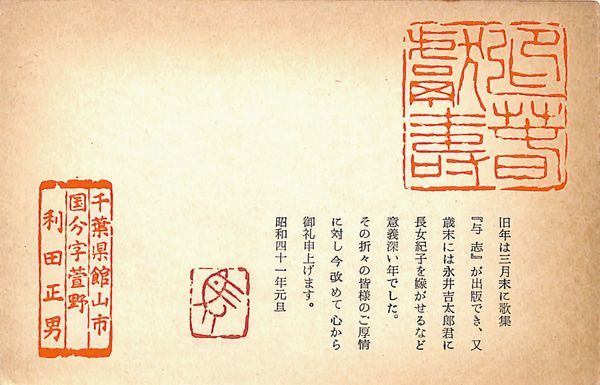 迎春
獻壽
旧年は三月末に歌集
『与 志』が出版でき、又
歳末には永井吉太郎君に
長女紀子を嫁がせるなど
意義深い年でした。
その折々の皆様のご厚情
に対し今改めて心から
御礼申上げます。
昭和四十一年元旦
千葉県館山市
国分字萱野
利田正男